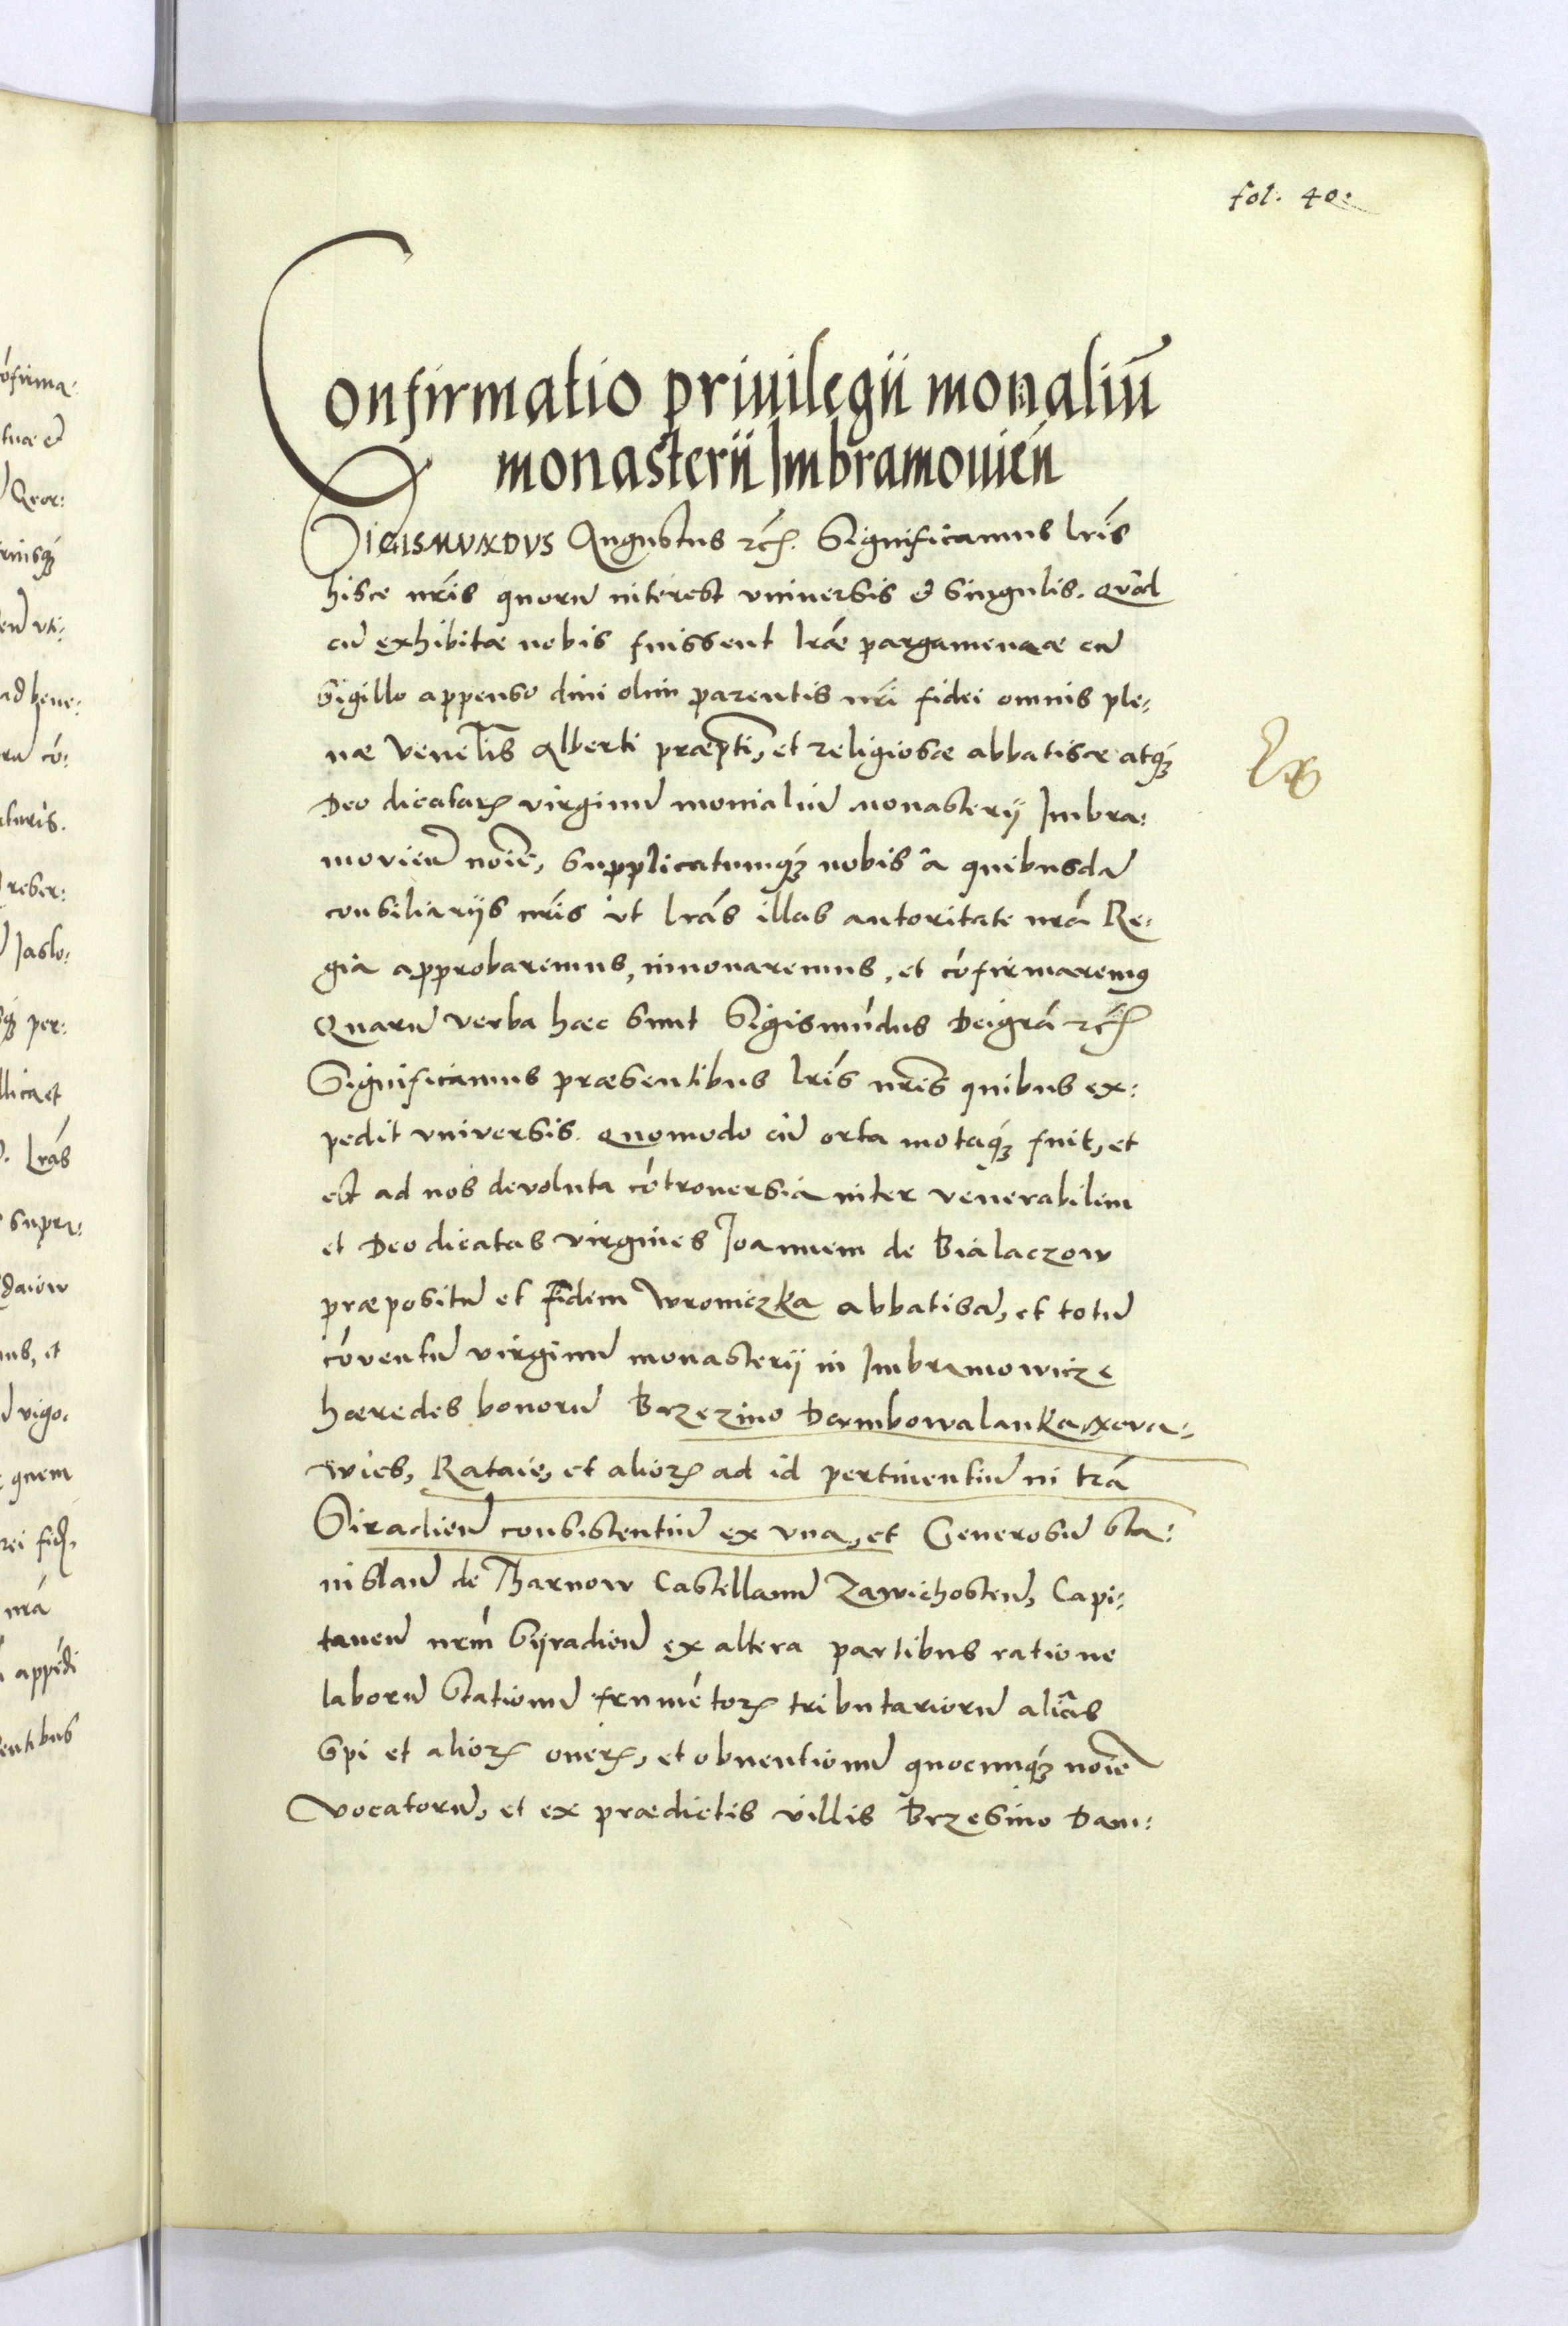 fol. 40.
Confirmatio priuilegii monaliū
monasterii Imbramouień
SIGISMVNDVS Augustus rc̃. Significamus lrīs
hisce nrīs quorū interest vniuersis et singulis. Quòd
cū exhibitæ nobis fuissent lræ pargameneæ cū
sigillo appenso diui olim parentis nrī fidei omnis ple:
næ Venelīs Alberti præpti, et religiosæ abbatisæ atq́ꝫ
Deo dicataꝝ virginū monialiū monasterij Imbra:
movieñ noīe, supplicatumq́ꝫ nobis â quibusdā
consiliarijs nrīs ut lrās illas autoritate nrā Re:
gia approbaremus, innouaremus, et cōfirmaremꝰ
Quarū verba hæc sunt Sigismūdus Dei grā rc̃
Significamus præsentibus lrīs nrīs quibus ex:
pedit vniversis. Quomodo cū orta motaq́ꝫ fuit, et
est ad nos devoluta cōtrouersia inter venerabilem
et Deo dicatas virgines Joannem de Bialaczow
præpositū et Fidem Wroniczka abbatisā, et totū
cōventū virginū monasterij in Imbramowicze
hæredes bonorū Brzezino Dambowalanka Nova:
wies, Rataie, et alioꝝ ad id pertinentiū in trā
Siradieñ consistentiū ex vna, et Generosū Sta:
nislaū de Tharnow Castellanū Zawichosteñ, Capi:
taneū nrm̄ Syradieñ ex altera partibus ratione
laborū stationū frumētoꝝ tributariorū aliâs
Spi et alioꝝ oneꝝ, et obuentionū quocunq́ꝫ noīe
vocatorū, et ex prædictis villis Brzesino Dam: